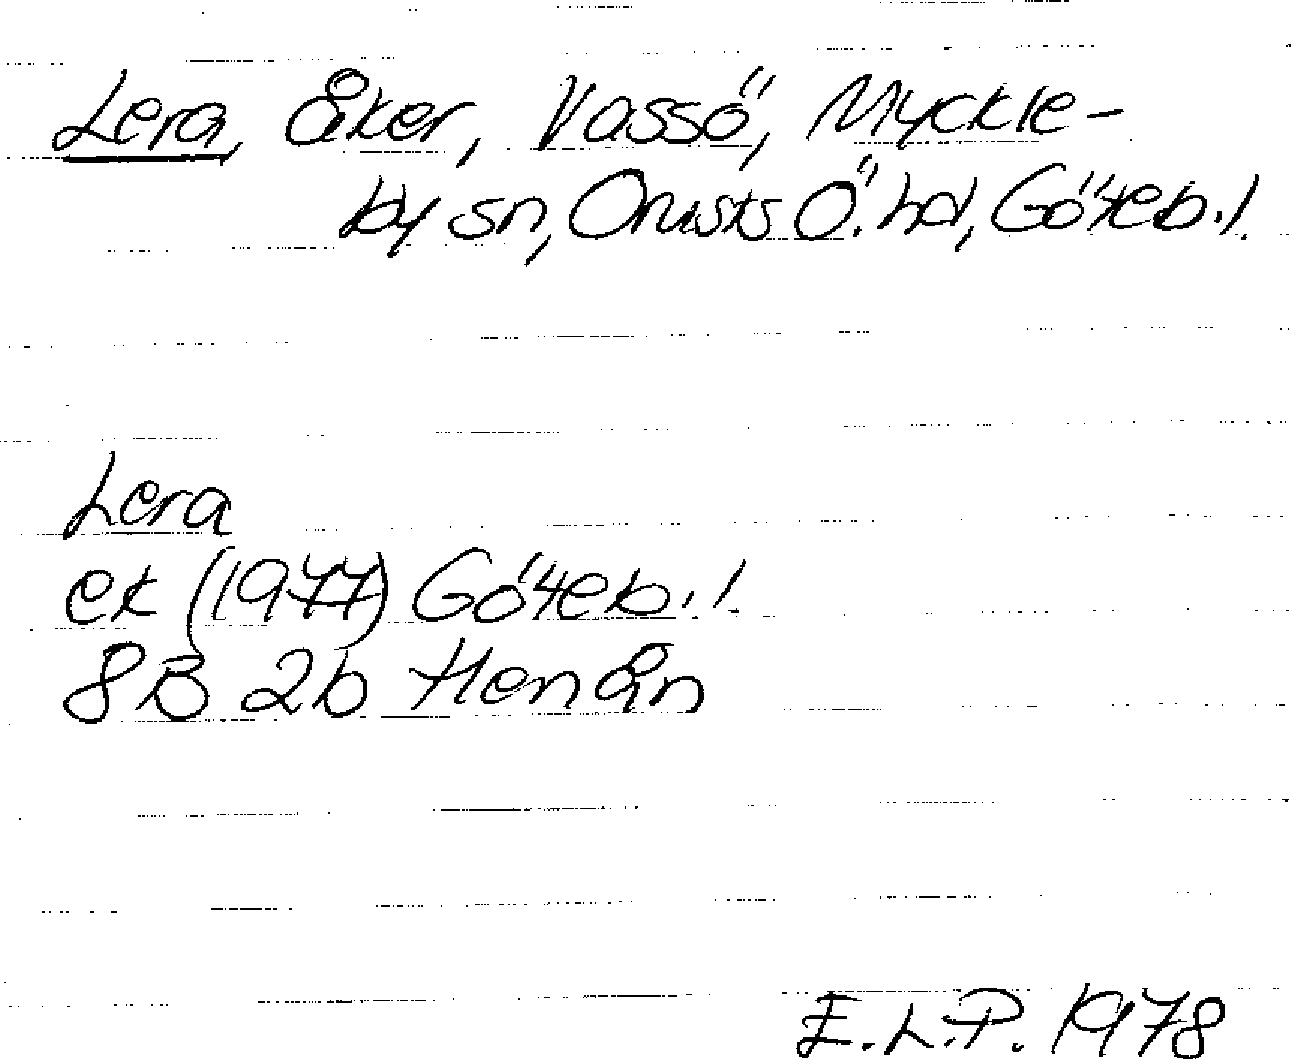 Lera, åker, Vassö, Myckle-
by sn, Orusts Ö. hd, Göteb. l.
Lera
ek (1977) Göteb. l.
8B 2b Henån
E.L.P. 1978